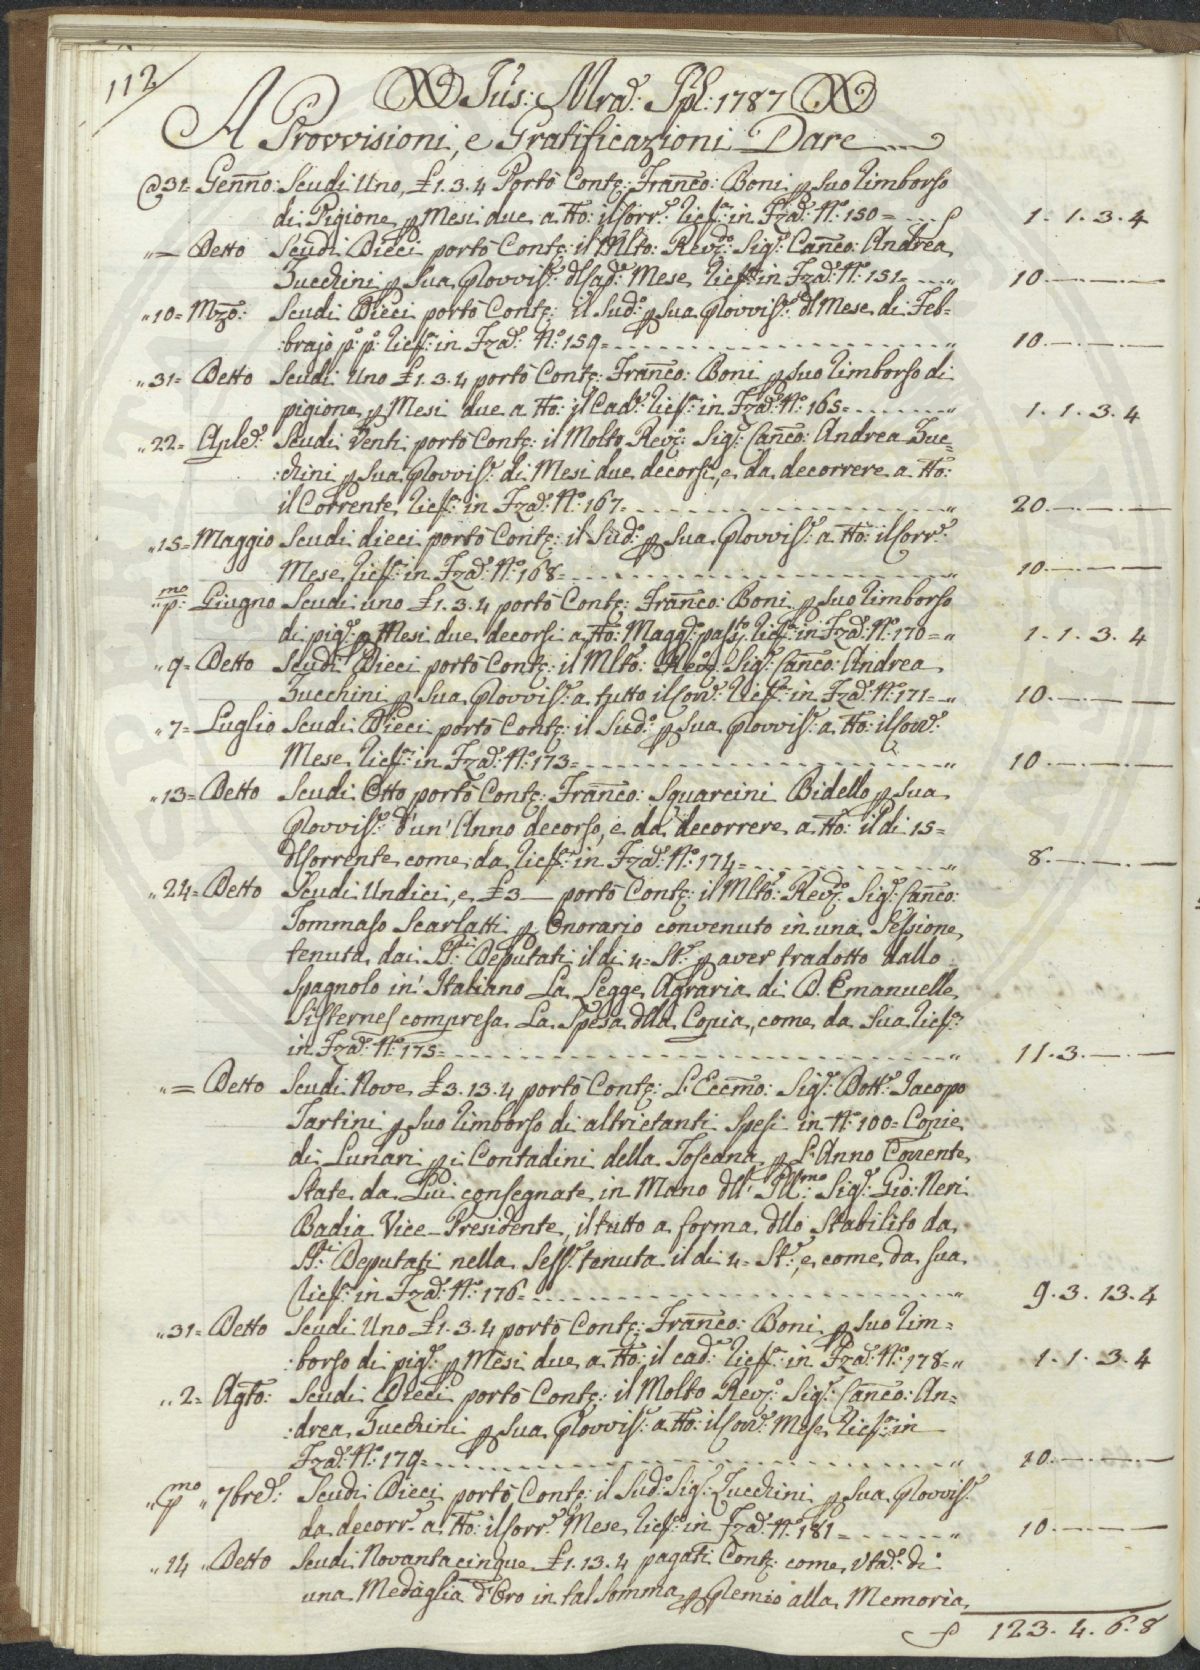 112
Jus: Mrad: Ppl: 1787
A Provvisioni, e Gratificazioni Dare
@31= Genno: Scudi Uno, £1.3.4 Portò Contz: Franco: Boni p suo rimborso
di Pigione p Mesi due a tto: il corre: ricef: in Fzad: No: 150= 1. 1. 3. 4
"= Detto Scudi Dieci portò Contz: il Mlto: Revdo: Sige: Canco: Andrea
Zucchini p Sua Provvis: dl sade: Mese ricef: in Fzad: No: 151 10.
"10= Mzo: Scudi Dieci portò Contz: il Sudo: p sua Provvis: dl Mese di Feb=
:brajo po: po: ricef: in Fzad: No: 159= " 10.
"31= Detto Scudi Uno £1.3.4 portò Contz: Franco: Boni p suo rimborso di
pigione p Mesi due a tto: il Cade: ricef: in Fzad: No: 165= " 1. 1. 3. 4
"22= Aple: Scudi Venti portò Contz: il Molto Revo: Sige: Canco: Andrea Zuc=
:chini p Sua Provvis: di Mesi due decorsi, e da decorrere a tto:
il Corrente ricef: in Fzad: No: 167= " 20.
"15= Maggio Scudi dieci portò Contz: il Sudo: p Sua Provvis: a tto: il corre:
Mese ricef: in Fzad: No: 168= " 10.
"pmo: Giugno Scudi uno £1.3.4 portò Contz: Franco: Boni p suo rimborso
di pige: p Mesi due decorsi a tto: Magge: pasto, ricef: in Fzad: No: 170= " 1. 1. 3. 4
"9= Detto Scudi Dieci portò Contz: il Mlto: Revo: Sige: Canco: Andrea
Zucchini p Sua Provvis: a tutto il corre: ricef: in Fzad: No: 171= " 10.
"7= Luglio Scudi Dieci portò Contz: il Sudo: p sua Provvis: a tto: il corre:
Mese ricef: in Fzad: No: 173= " 10.
"13= Detto Scudi Otto portò Contz: Franco: Squarcini Bidello p sua
Provvis: d'un' Anno decorso, e da decorrere a tto: il di 15=
dl corrente come da ricef: in Fzad: No: 174= " 8.
"24= Detto Scudi Undici, e £3 — portò Contz: il Mlto: Revdo: Sige: Canco:
Tommaso Scarlatti p Onorario convenuto in una Sessione
tenuta dai SSri: Deputati il di 4= Ste: p aver tradotto dallo
Spagnolo in' Italiano La Legge Agraria di D. Emanuelle
Sisternes compresa La Spesa dlla Copia, come da Sua ricef:
in Fzad: No: 175= " 11. 3.
"= Detto Scudi Nove £3.13.4 portò Contz: L'Eccmo: Sige: Dotte: Jacopo
Tartini p suo rimborso di altrietanti Spesi in No: 100= Copie
di Lunari p i Contadini della Toscana p L'Anno Corrente
State da Lui consegnate in Mano dll' Illmo: Sige: Gio: Neri
Badia Vice-Presidente, il tutto a forma dllo Stabilito da
SSri: Deputati nella Sesse: tenuta il di 4= Ste:, e come da sua
ricef: in Fzad: No: 176= " 9. 3. 13. 4
"31= Detto Scudi Uno £1.3.4 portò Contz: Franco: Boni p suo rim=
:borso di pige: p Mesi due a tto: il cade: ricef: in Fzad: No: 178= " 1. 1. 3. 4
"2= Agto: Scudi Dieci portò Contz: il Molto Revo: Sige: Canco: An=
:drea Zucchini p sua Provvis: a tto: il corre: Mese ricef: in
Fzad: No: 179= " 10.
"pmo " 7bre: Scudi Dieci portò Contz: il Sudo: Sige: Zucchini p sua Provvis:
da decorre: a tto: il corre: Mese ricef: in Fzad: No: 181= " 10.
"14 " Detto Scudi Novantacinque £1.13.4 pagati Contz: come Vtad: di
una Medaglia d'Oro in tal somma p Premio alla Memoria
123. 4. 6. 8